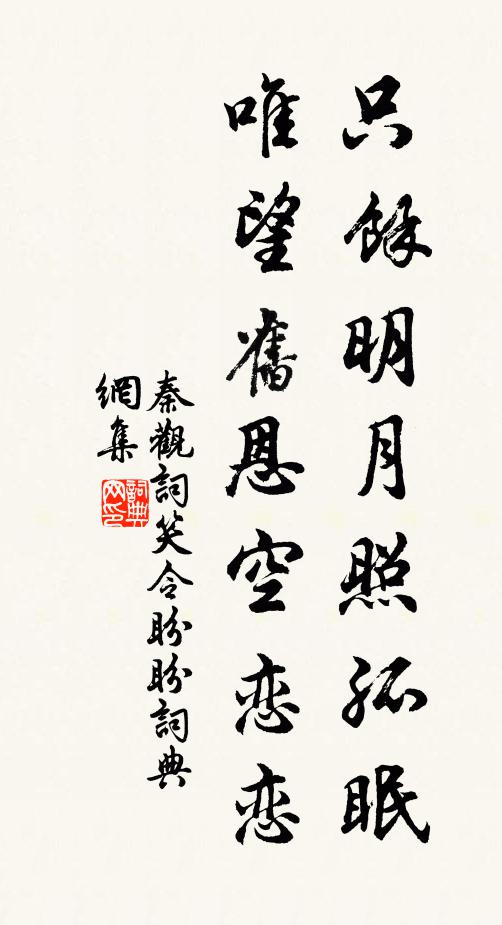 只餘明月照孤眠
唯望舊恩空恋恋
秦觀詞笑令盼盼詞典
網集
詞典
网印